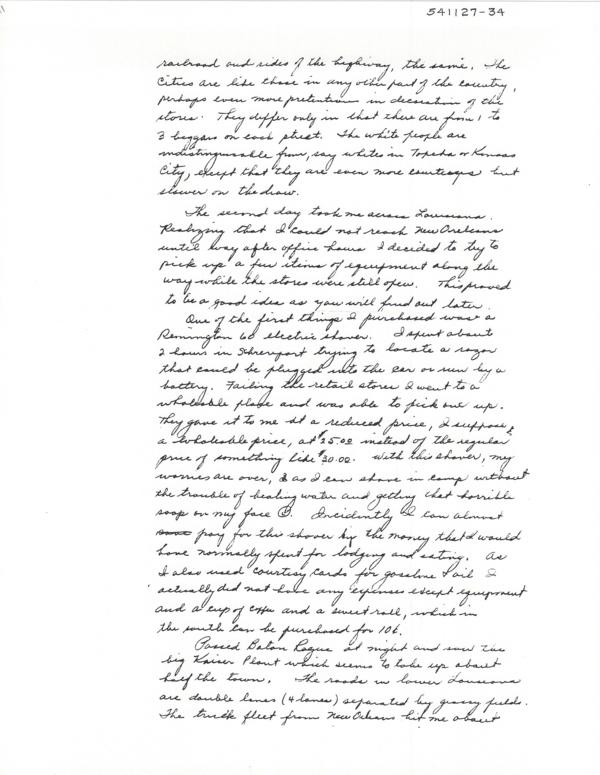 541127-34
railroad and sides of the highway, the same. The
Cities are like those in any other part of the country,
perhaps even more pretentious in decoration of the
stores. They differ only in that there are from 1 to
3 beggars on each street. The white people are
indistinguisable from, say whites in Topeka or Kansas
City, except that they are even more courteous but
slower on the draw.
The second day took me across Louisiana.
Realizing that I could not reach New Orleans
until way after office hours I decided to try to
pick up a few items of equipment along the
way while the stores were still open. This proved
to be a good idea as you will find out later.
One of the first things I purchased was a
Remington 60 electric shaver. I spent about
2 hours in Shreveport trying to locate a razor
that could be plugged into the car or run by a
battery. Failing the retail stores I went to a
wholesale place and was able to pick one up.
They gave it to me at a reduced price, I suppose,
a wholesale price, at $25.00 instead of the regular
price of something like $30.00. With this shaver, my
worries are over, as I can shave in camp without
the trouble of heating water and getting that horrible
soap on my face. Incidently I can almost
pay for the shaver by the money that I would
have normally spent for lodging and eating. As
I also used courtesy cards for gasoline & oil I
actually did not have any expenses except equipment
and a cup of coffee and a sweet roll, which in
the south can be purchased for 10¢.
Passed Baton Rogue at night and saw the
big Kaiser Plant which seems to take up about
half the town. The roads in lower Louisiana
are double lanes (4 lanes) separated by grassy fields.
The truck fleet from New Orleans hit me about